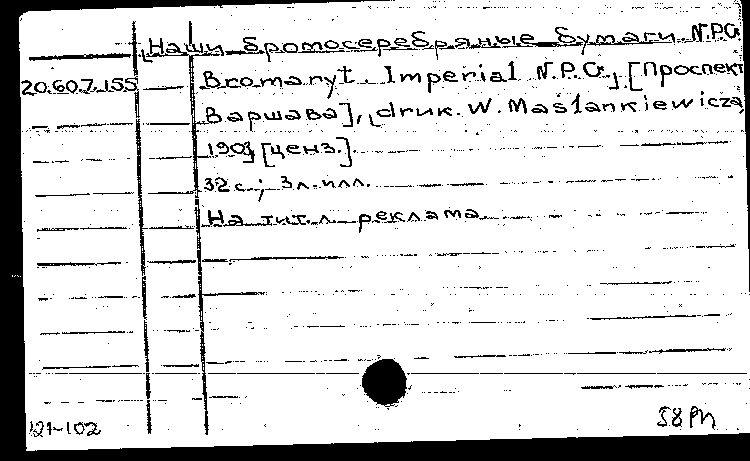 Наши бромосеребряные бумаги N.P.G.
20.60.7.155 Bromaryt. Imperial N.P.G.], [Проспект
Варшава], druk. W. Maslankiewicza,
[ценз.]
32 с.; 3 л. илл.
На тит. л. реклама
121-102